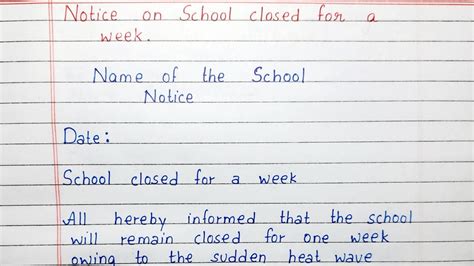 Notice on School closed for a
week.
Name of the School
Notice
Date:
School closed for a week
All hereby informed that the school
will remain closed for one week
owing to the sudden heat wave